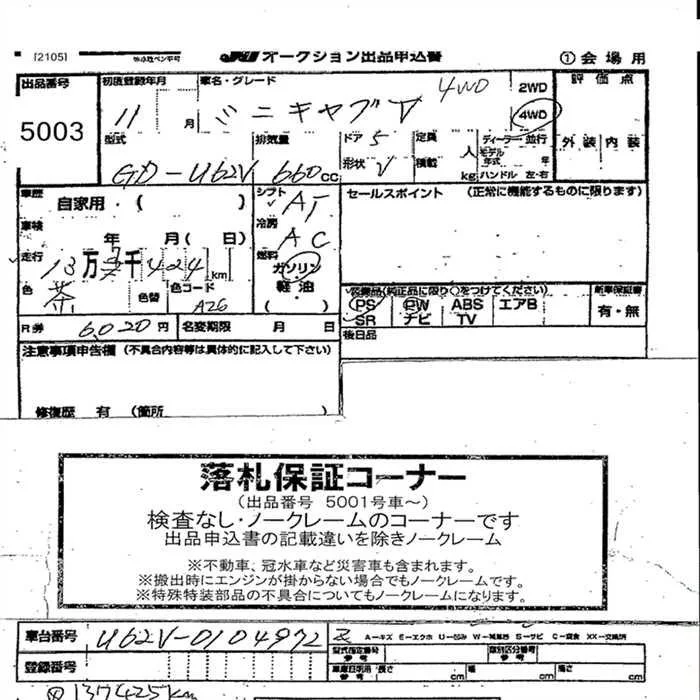 [2105]
オークション出品申込書
① 会場用
出品番号 初度登録年月 車名・グレード 4WD 2WD 評価点
5003 11 月 ミニキャブV 4WD
型式 排気量 ドア 5 定員 人 ディーラー 並行 外装 内装
GD-U62V 660cc 形状 V 積載 kg モデル年式 年 ハンドル 左・右
車歴 自家用・( ) シフト AT セールスポイント (正常に機能するものに限ります)
車検 年 月( 日) 冷房 AC
走行 13万 千424km 燃料 ガソリン
色 茶 色替 色コード A26 軽油 ( )
装備品(純正品に限り○をつけてください) 新車保証書
PS PW ABS エアB 有・無
SR ナビ TV
R券 6,020円 名変期限 月 日 後日品
注意事項申告欄 (不具合内容等は具体的に記入して下さい)
修復歴 有 (箇所 )
落札保証コーナー
(出品番号 5001号車~)
検査なし・ノークレームのコーナーです
出品申込書の記載違いを除きノークレーム
※不動車、冠水車など災害車も含まれます。
※搬出時にエンジンが掛からない場合でもノークレームです。
※特殊特装部品の不具合についてもノークレームになります。
車台番号 U62V-0104972 A-キズ E-エクボ U-凹み W-補修跡 S-サビ C-腐食 XX-交換済
登録番号 型式指定番号 参考 類別区分番号 参考
車庫証明用 参考 長さ cm 幅 cm 高さ cm
137425km